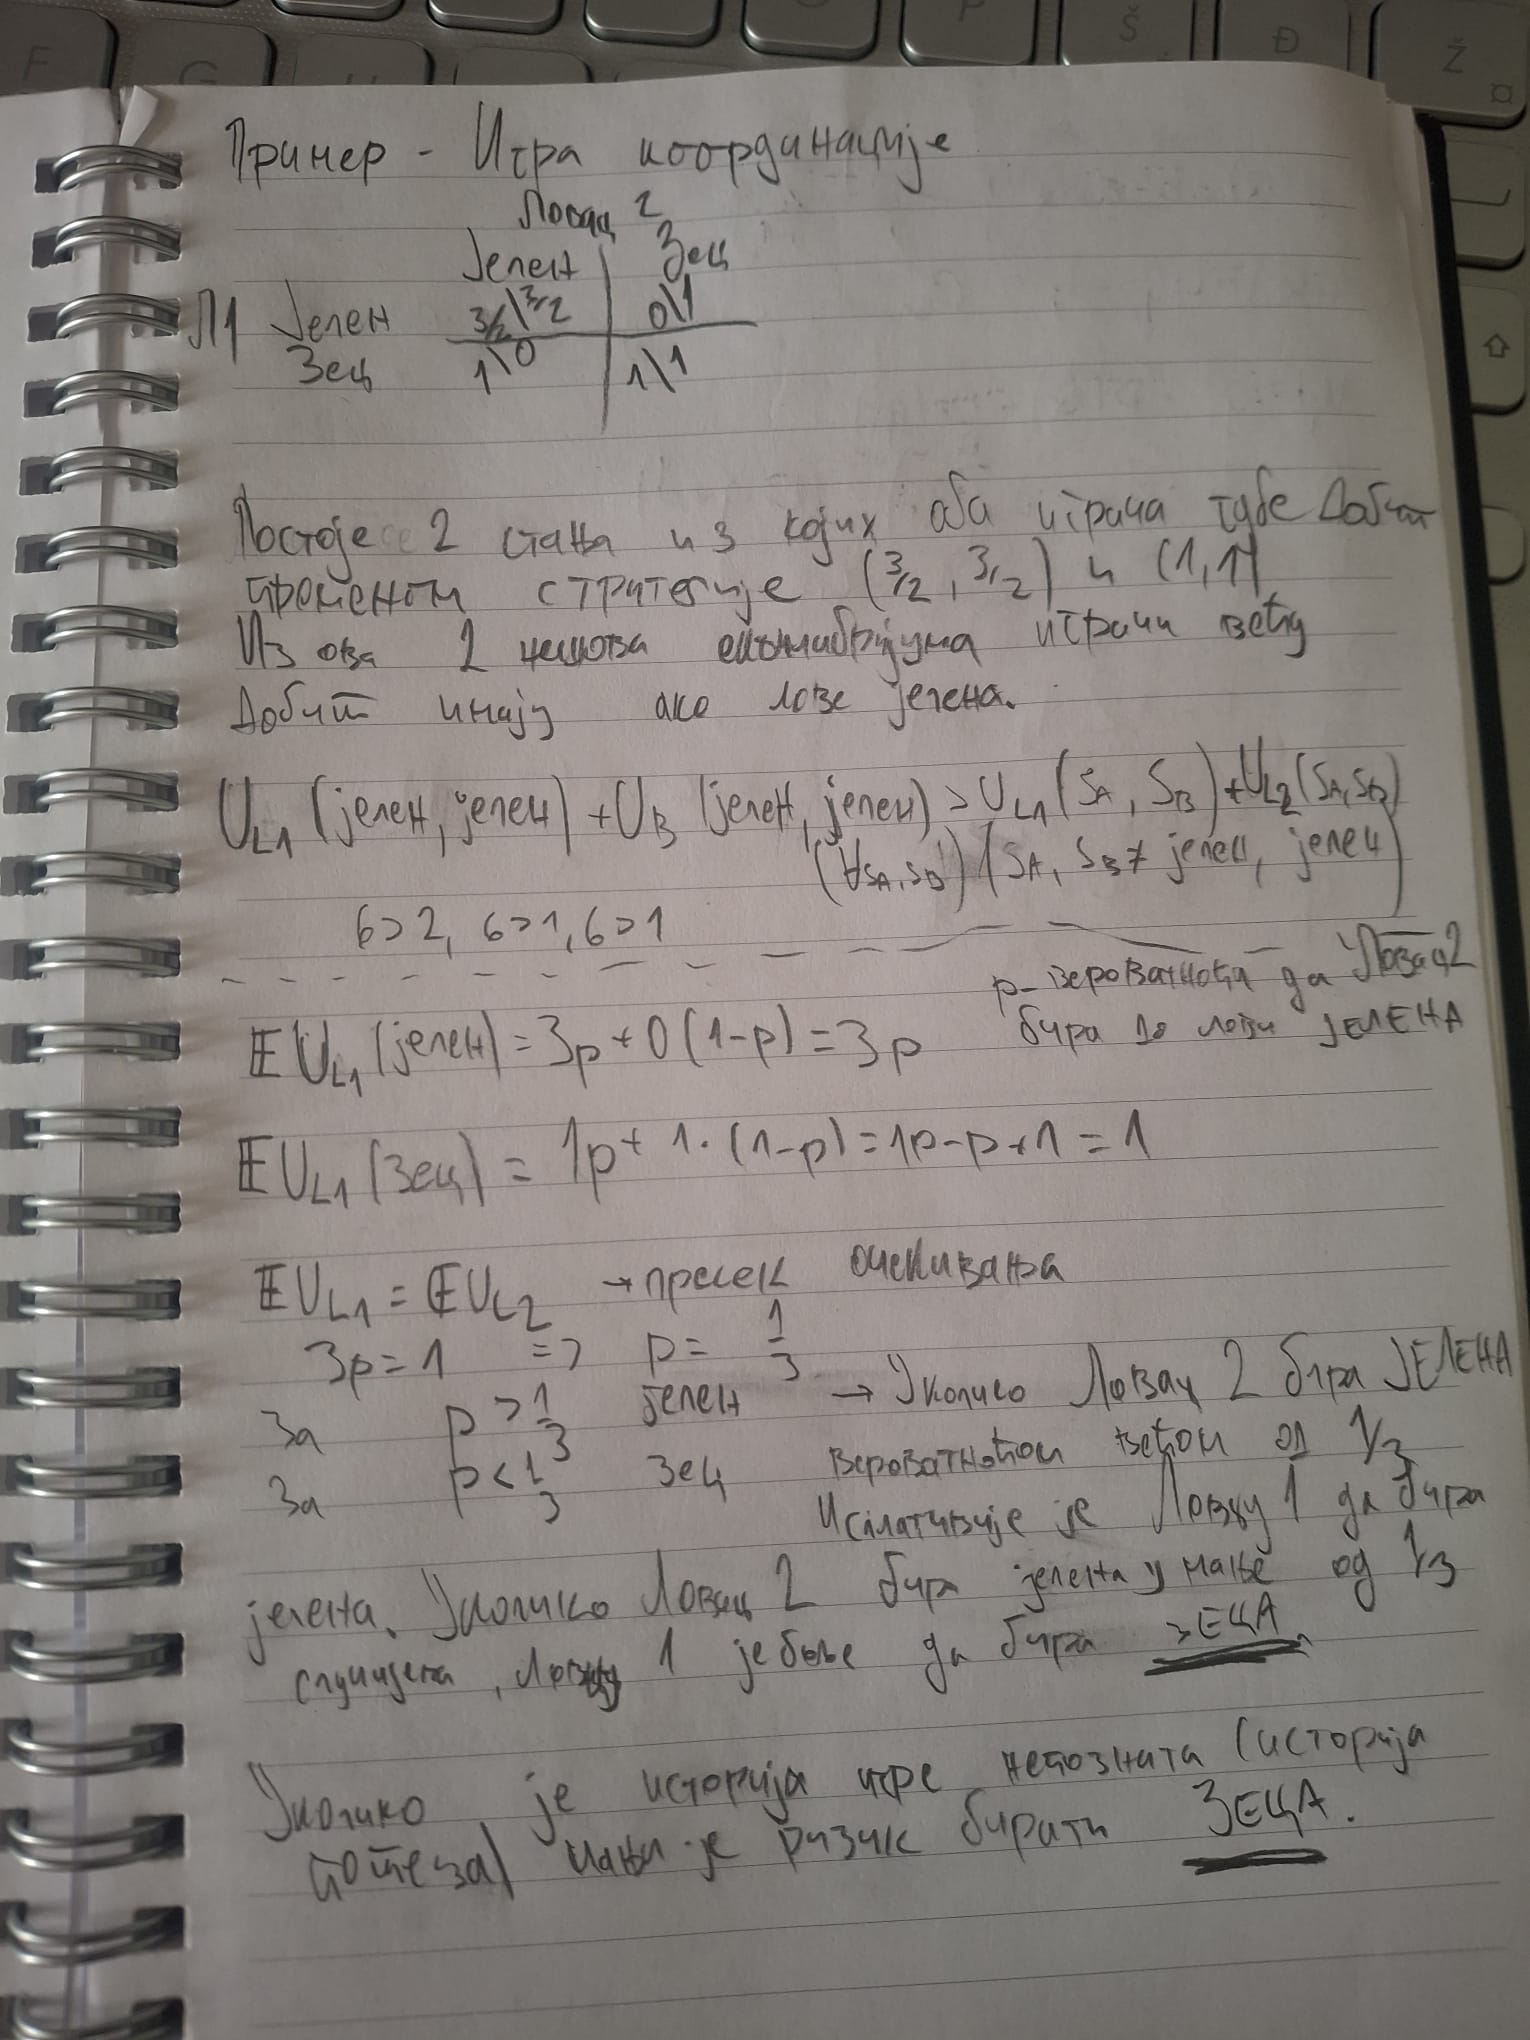 F
G
P
Š
Đ
Ž
Пример - Игра координације
Ловац 2
Јелен Зец
Л1 Јелен 3/2\3/2 0\1
Зец 1\0 1\1
Постоје 2 стања из којих оба играча губе Добит
променом стратегије (3/2, 3/2) и (1,1)
Из ова 2 нешова еквилибријума играчи већу
Добит имају ако лове јелена.
U_L1 (јелен, јелен) + U_B (јелен, јелен) > U_L1 (S_A, S_B) + U_L2 (S_A, S_B)
(∀S_A, S_B) (S_A, S_B ≠ јелен, јелен)
6>2, 6>1, 6>1
p- вероватноћа да Ловац 2
бира да лови ЈЕЛЕНА
EU_L1 (јелен) = 3p + 0(1-p) = 3p
EU_L1 (Зец) = 1p + 1·(1-p) = 1p-p+1 = 1
EU_L1 = EU_L2 → пресек очекивања
3p = 1 => p = 1/3
За p > 1/3 јелен → Уколико Ловац 2 бира ЈЕЛЕНА
За p < 1/3 Зец вероватноћом већом од 1/3
Исплативије је Ловцу 1 да бира
јелена. Уколико Ловац 2 бира јелена у мање од 1/3
случајева, Ловцу 1 је боље да бира ЗЕЦА.
Уколико је историја игре непозната (историја
потеза) мањи је ризик бирати ЗЕЦА.